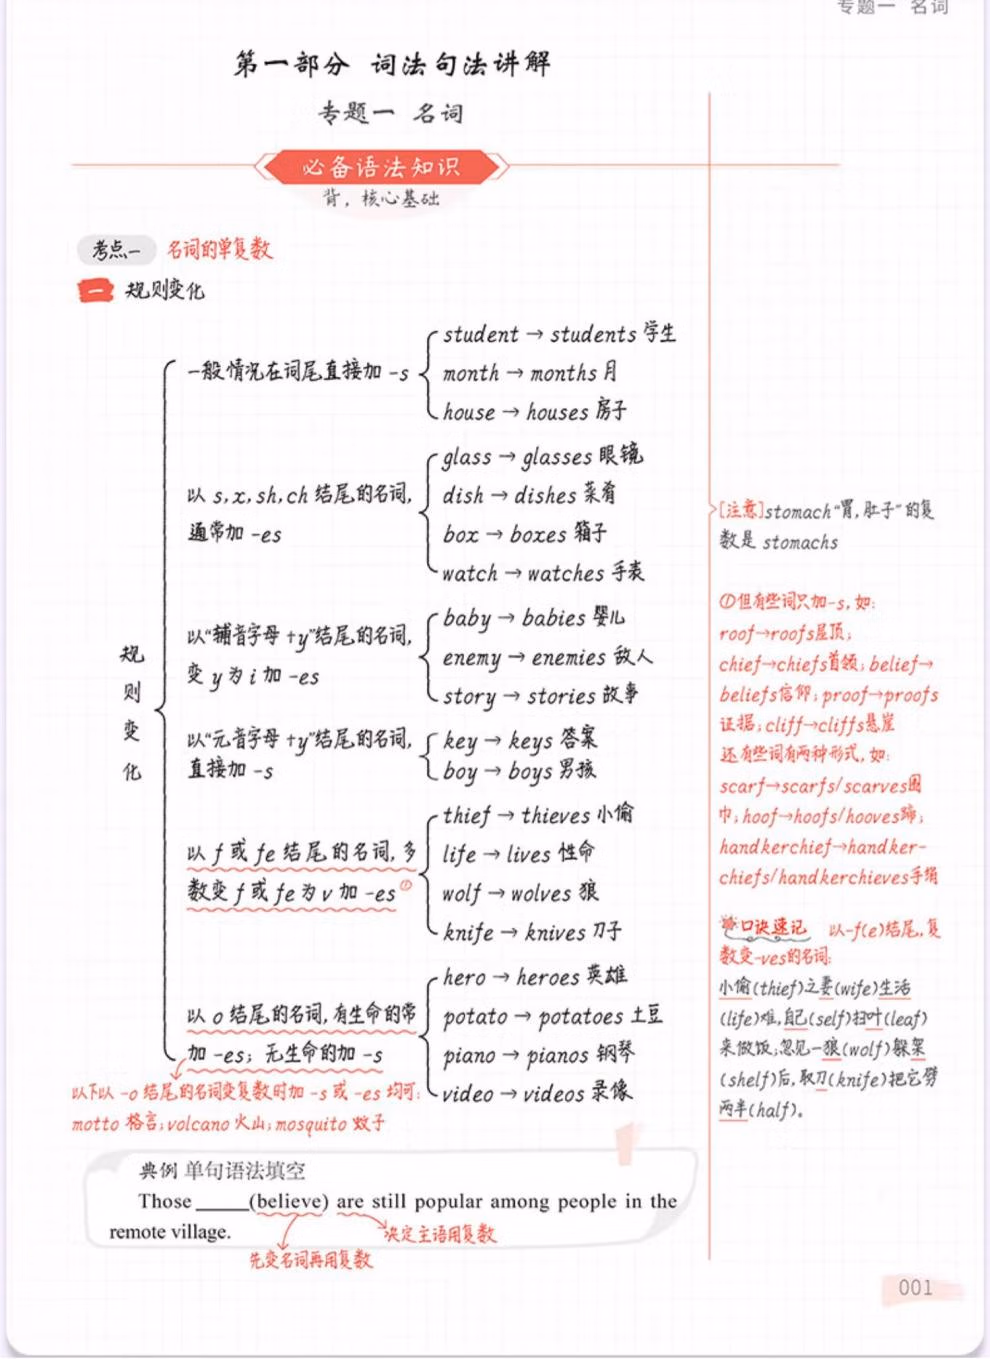 专题一 名词
第一部分 词法句法讲解
专题一 名词
必备语法知识
背，核心基础
考点一 名词的单复数
一 规则变化
规则变化
一般情况在词尾直接加 -s
student → students 学生
month → months 月
house → houses 房子
以 s, x, sh, ch 结尾的名词,
通常加 -es
glass → glasses 眼镜
dish → dishes 菜肴
box → boxes 箱子
watch → watches 手表
以“辅音字母 +y”结尾的名词,
变 y 为 i 加 -es
baby → babies 婴儿
enemy → enemies 敌人
story → stories 故事
以“元音字母 +y”结尾的名词,
直接加 -s
key → keys 答案
boy → boys 男孩
以 f 或 fe 结尾的名词, 多
数变 f 或 fe 为 v 加 -es①
thief → thieves 小偷
life → lives 性命
wolf → wolves 狼
knife → knives 刀子
以 o 结尾的名词, 有生命的常
加 -es; 无生命的加 -s
hero → heroes 英雄
potato → potatoes 土豆
piano → pianos 钢琴
video → videos 录像
以下以 -o 结尾的名词变复数时加 -s 或 -es 均可:
motto 格言; volcano 火山; mosquito 蚊子
典例 单句语法填空
Those _____(believe) are still popular among people in the
remote village.
决定主语用复数
先变名词再用复数
[注意]stomach“胃, 肚子”的复
数是 stomachs
①但有些词只加-s, 如:
roof→roofs屋顶;
chief→chiefs首领; belief→
beliefs信仰; proof→proofs
证据; cliff→cliffs悬崖
还有些词有两种形式, 如:
scarf→scarfs/scarves围
巾; hoof→hoofs/hooves蹄;
handkerchief→handker-
chiefs/handkerchieves手绢
口诀速记 以-f(e)结尾, 复
数变-ves的名词:
小偷(thief)之妻(wife)生活
(life)难, 自己(self)扫叶(leaf)
来做饭; 忽见一狼(wolf)躲架
(shelf)后, 取刀(knife)把它劈
两半(half)。
001